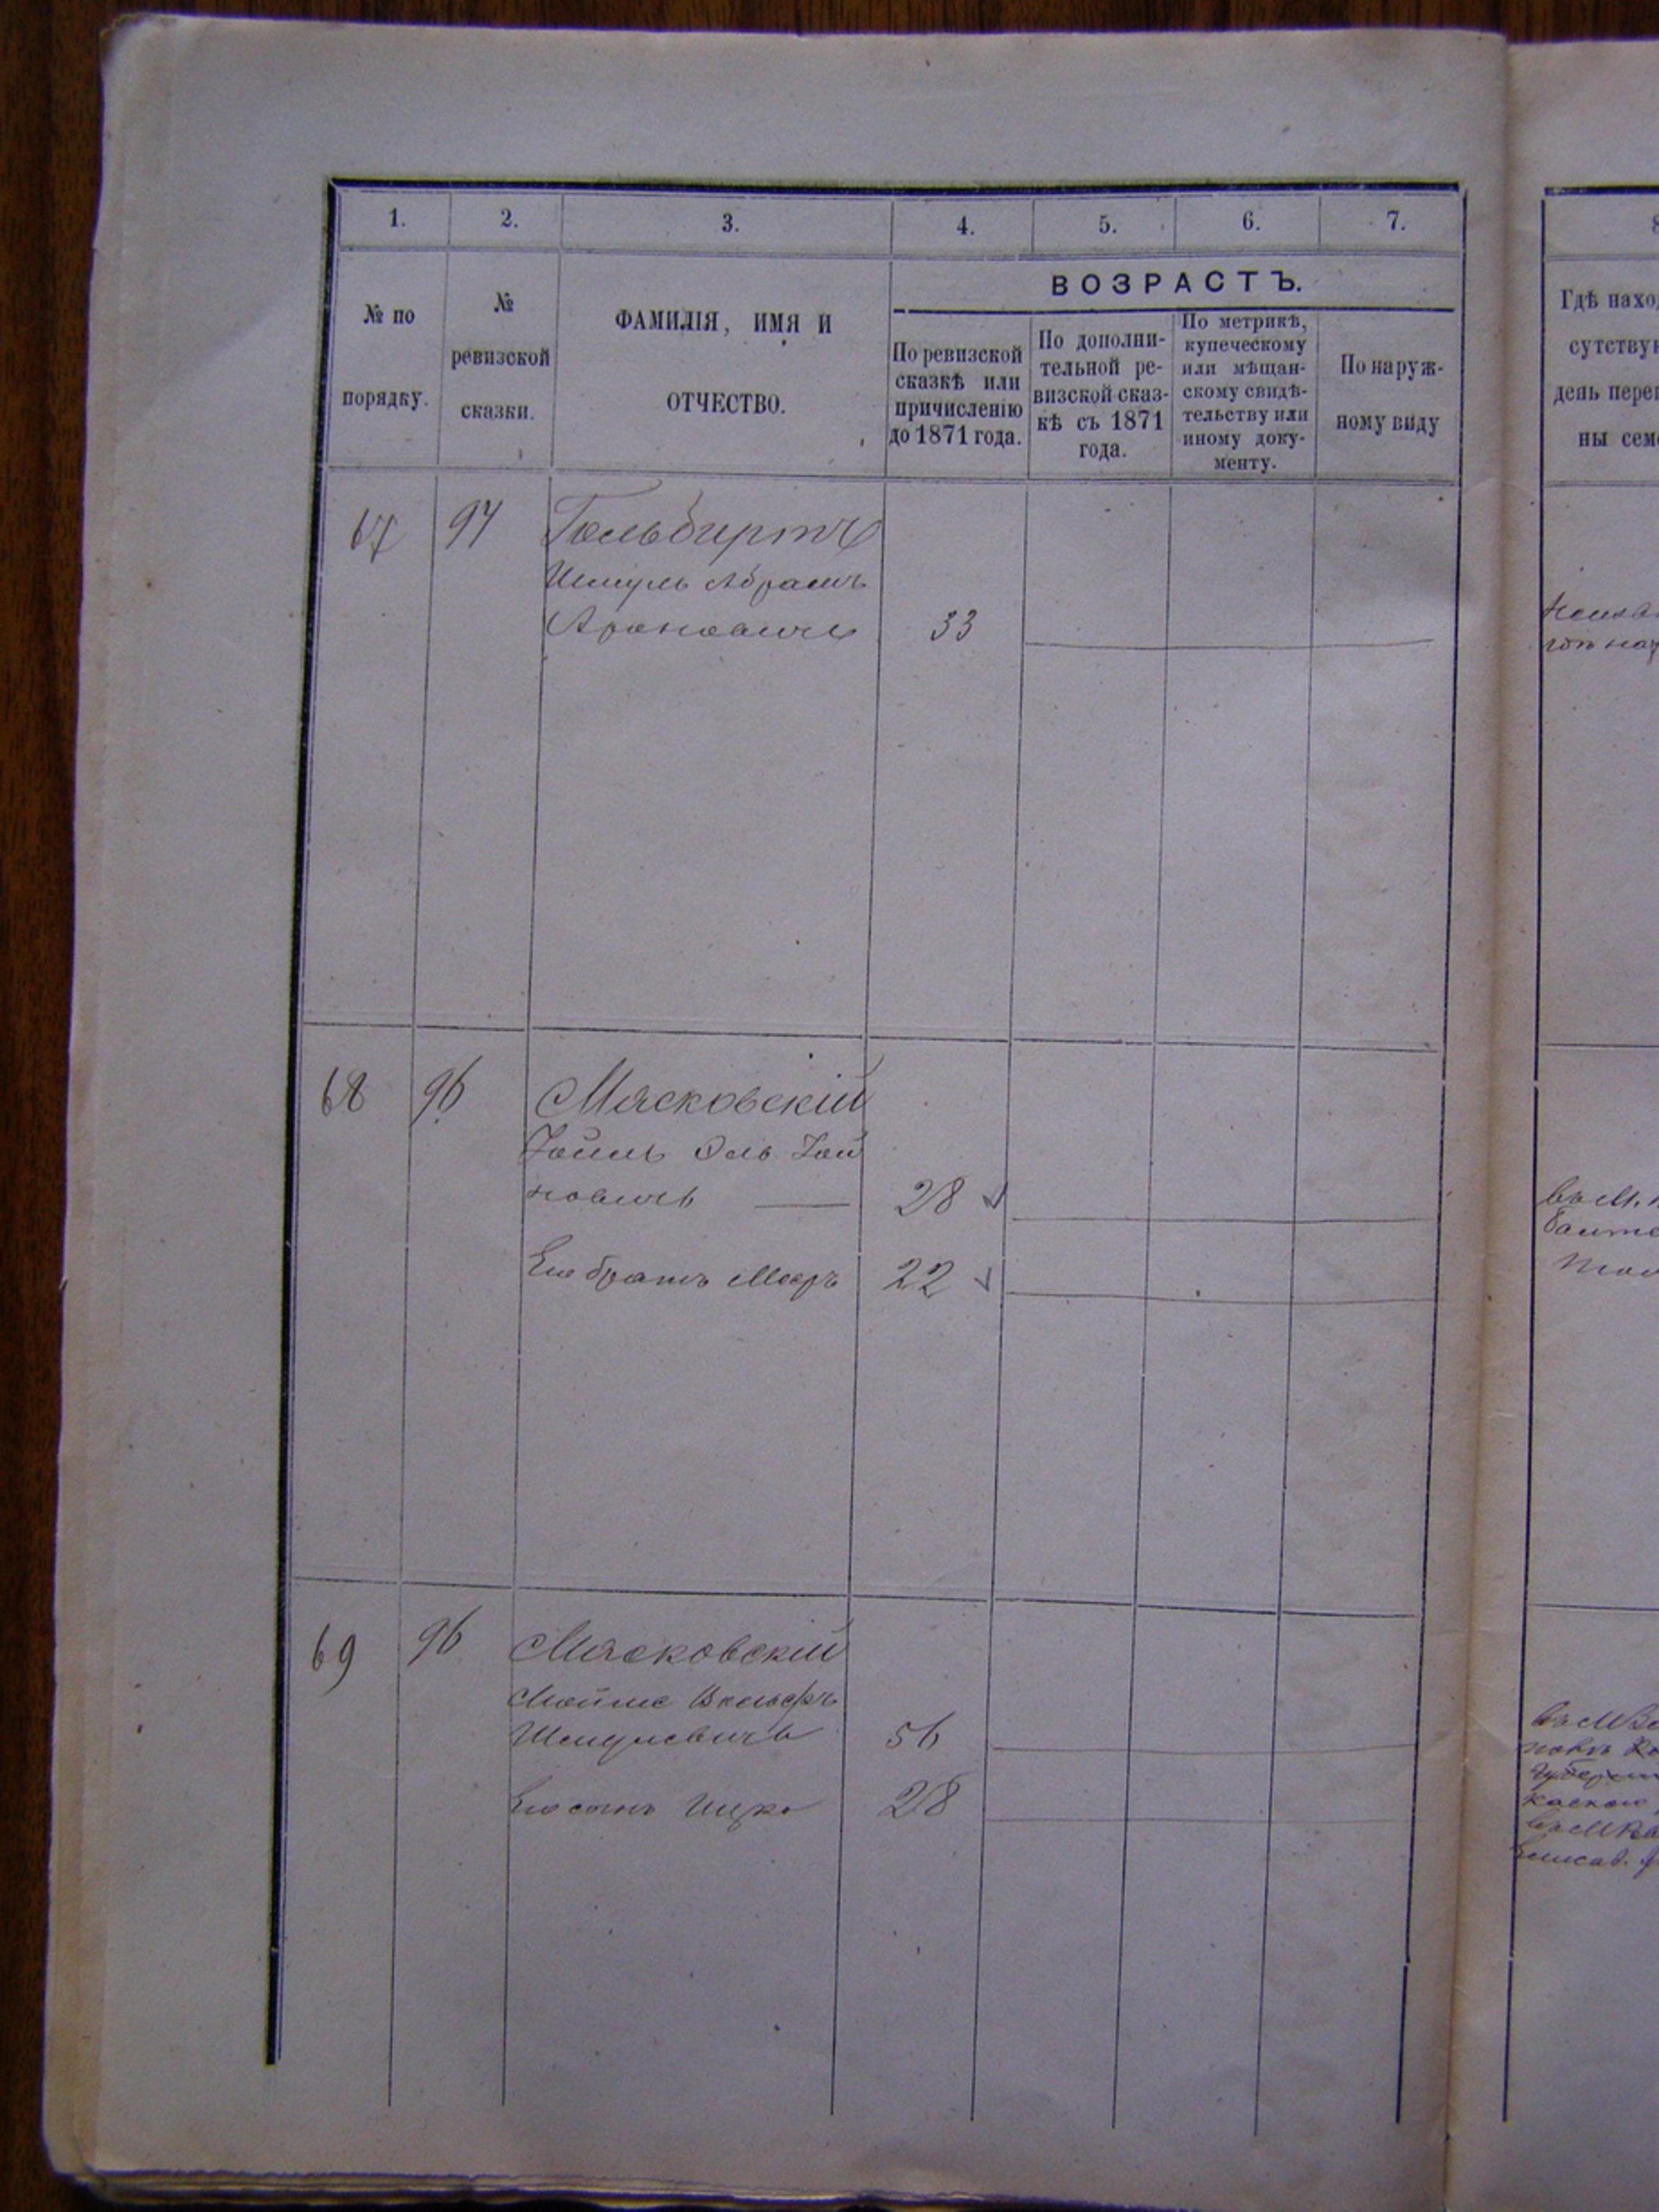 1. 2. 3. 4. 5. 6. 7.
№ по порядку.
№ ревизской сказки.
ФАМИЛІЯ, ИМЯ И
ОТЧЕСТВО.
ВОЗРАСТЪ.
По ревизской
сказкѣ или
причисленію
до 1871 года.
По дополни-
тельной ре-
визской сказ-
кѣ съ 1871
года.
По метрикѣ,
купеческому
или мѣщан-
скому свидѣ-
тельству или
иному доку-
менту.
По наруж-
ному виду
Гдѣ нахо
сутству
день пере
ны сем
67 94 Гольбиртъ
Шмуль Абрамъ
Ароновичъ 33
68 96 Мясковскій
Хаимъ Эль Хай
новичъ — 28
Его братъ Мееръ 22
69 96 Мясковскій
Мойше Вольфъ
Шмулевичъ 56
Его сынъ Ицко 28